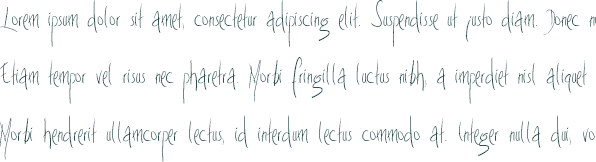 Lorem ipsum dolor sit amet, consectetur adipiscing elit. Suspendisse ut justo diam. Donec
Etiam tempor vel risus nec pharetra. Morbi fringilla luctus nibh, a imperdiet nisl aliquet
Morbi hendrerit ullamcorper lectus, id interdum lectus commodo at. Integer nulla dui, vo